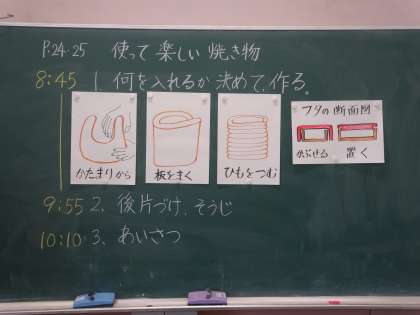 P.24.25 使って楽しい焼き物
8:45 1 何を入れるか決めて、作る。
かたまりから
板をまく
ひもをつむ
フタの断面図
かぶせる 置く
9:55 2、後片づけ、そうじ
10:10 3、あいさつ